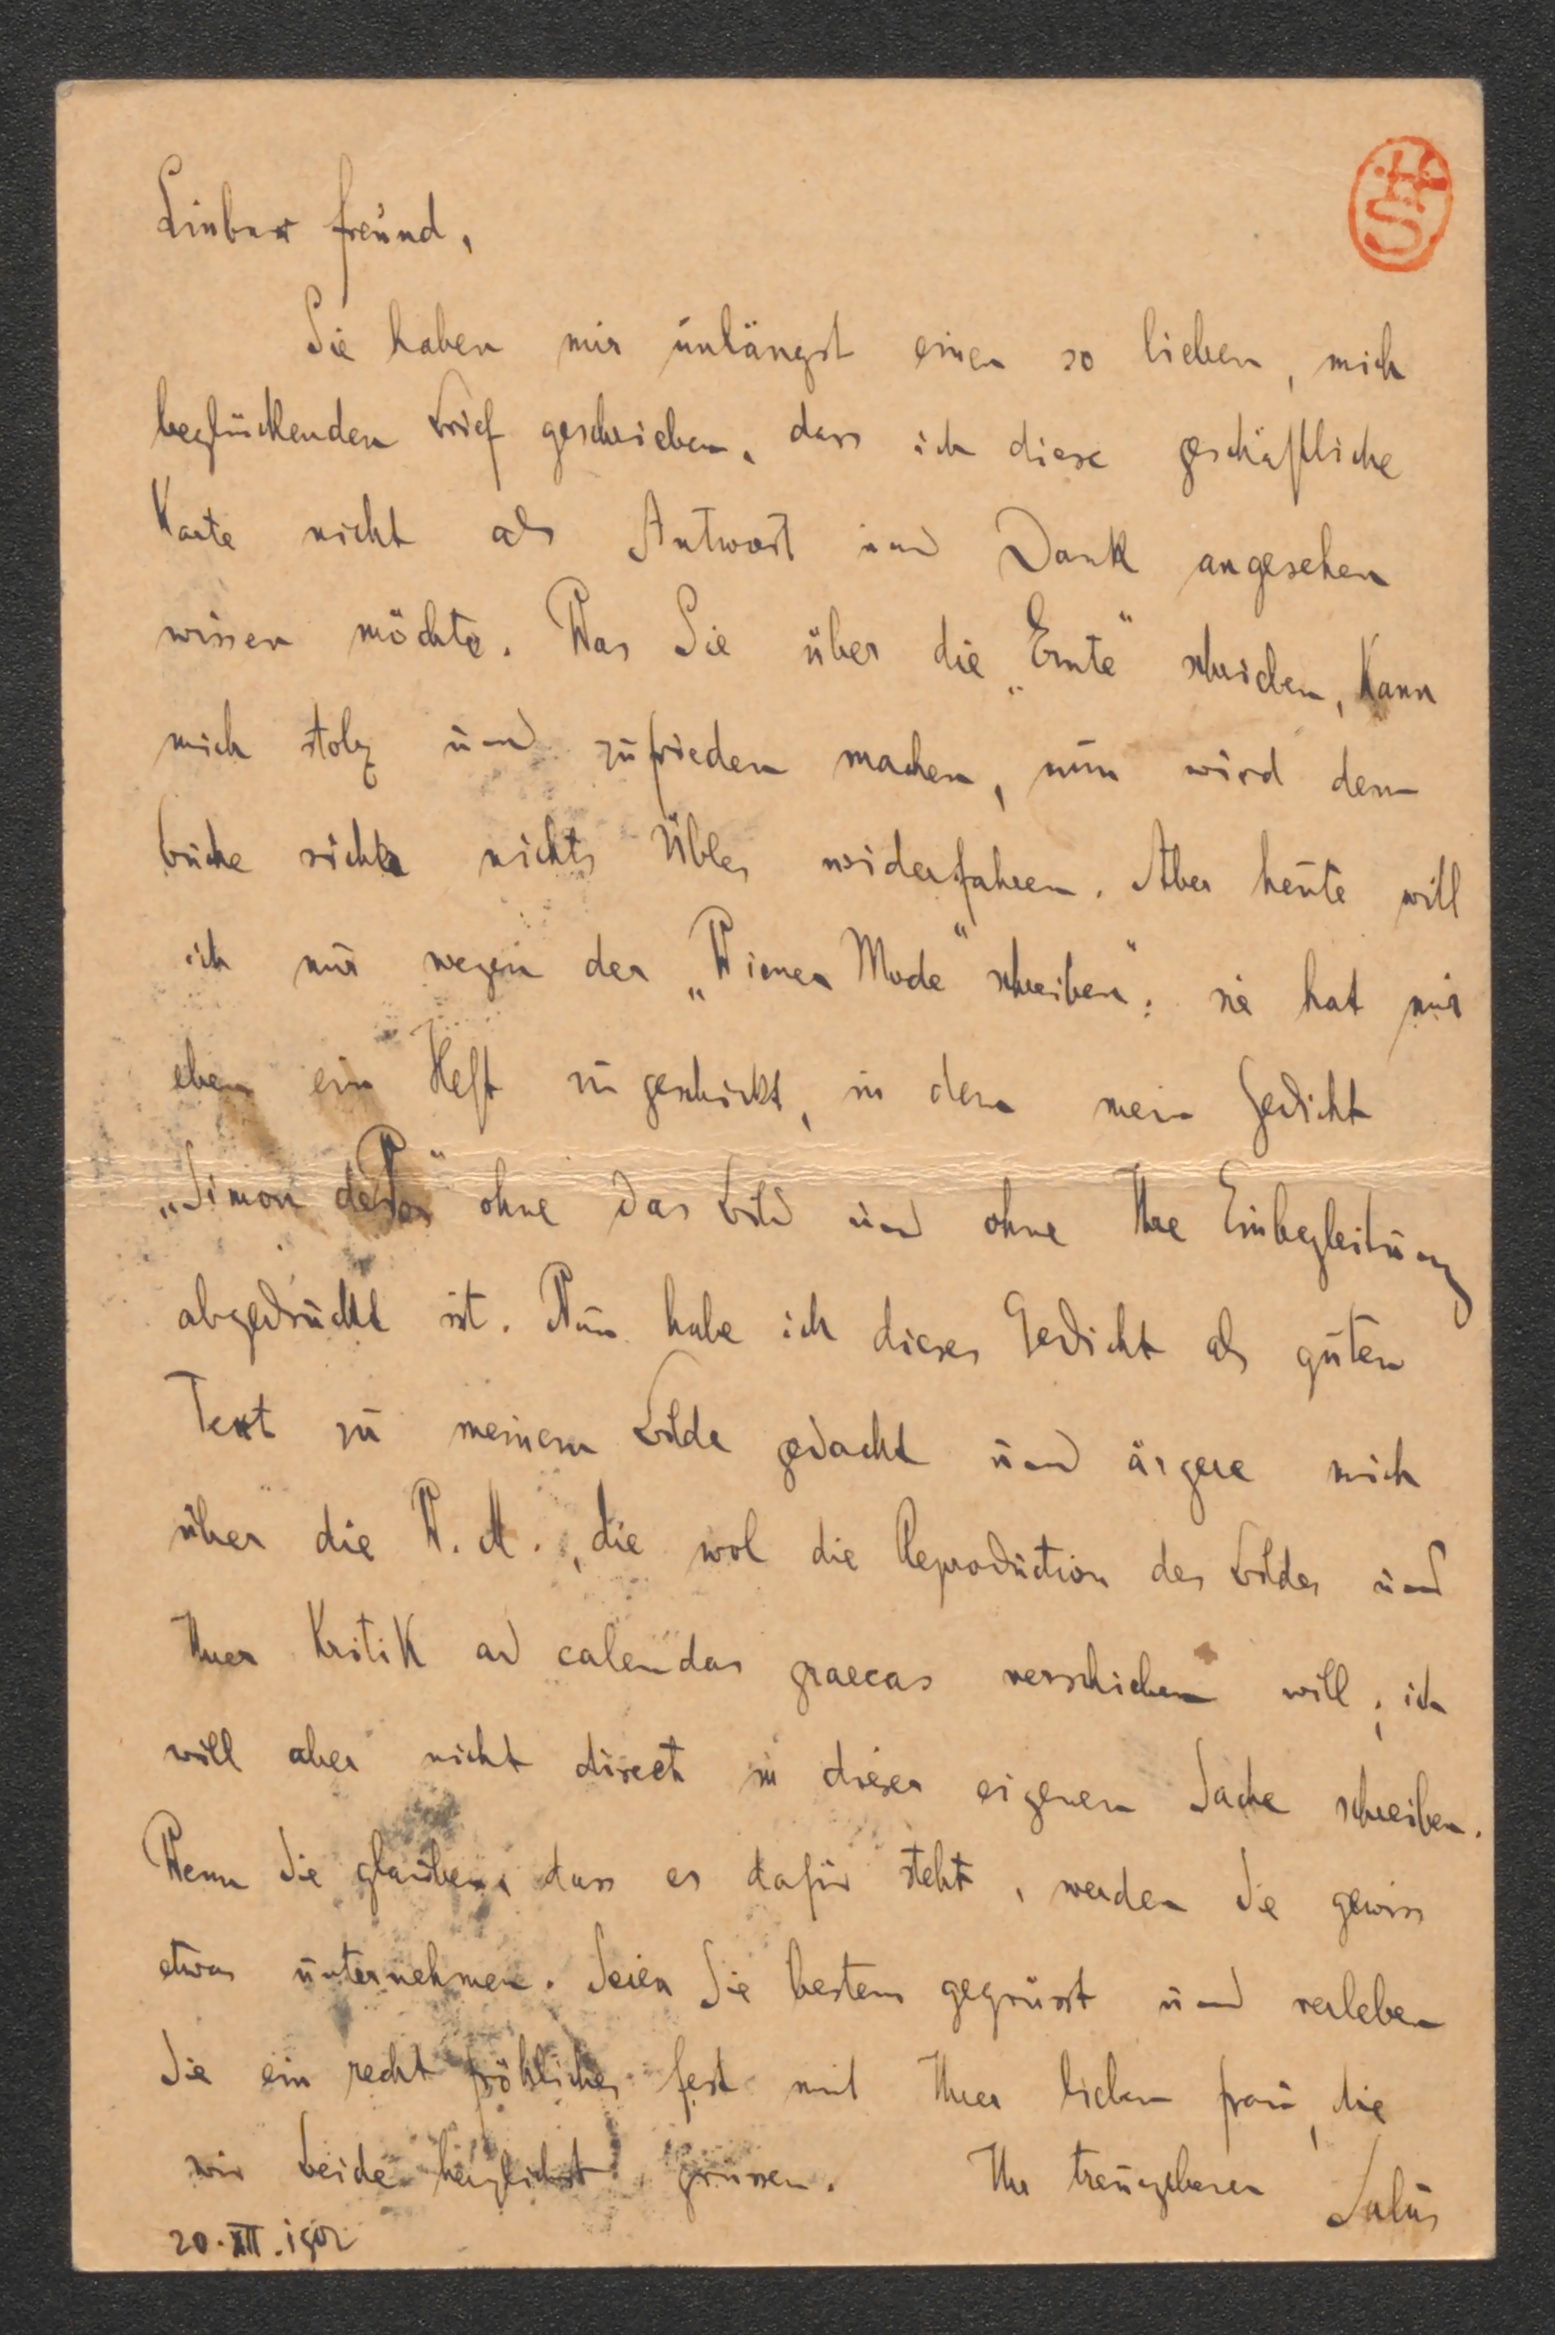 HS
Lieber Freund,
Sie haben mir unlängst einen so lieben, mich
beglückenden Brief geschrieben, dass ich diese geschäftliche
Karte nicht als Antwort und Dank angesehen
wissen möchte. Was Sie über die „Ernte" schreiben, kann
mich stolz und zufrieden machen, nun wird dem
Buche nichts Übles widerfahren. Aber heute will
ich nur wegen der „Wiener Mode" schreiben": sie hat mir
eben ein Heft zugeschickt, in dem mein Gedicht
„Simon ohne das Bild und ohne Ihre Einbegleitung
abgedruckt ist. Nun habe ich dieses Gedicht als guten
Text zu meinem Bilde gedacht und ärgere mich
über die W. M., die wol die Reproduction des Bildes und
Ihrer Kritik ad calendas graecas verschieben will; ich
will aber nicht direct in dieser eigenen Sache schreiben.
Wenn Sie glauben, dass es dafür steht, werden Sie gewiss
etwas unternehmen. Seien Sie bestens gegrüsst und verleben
Sie ein recht fröhliches Fest mit Ihrer lieben Frau, die
wir beide herzlichst grüssen. Ihr treuergebener Salus
20. XII. 1902